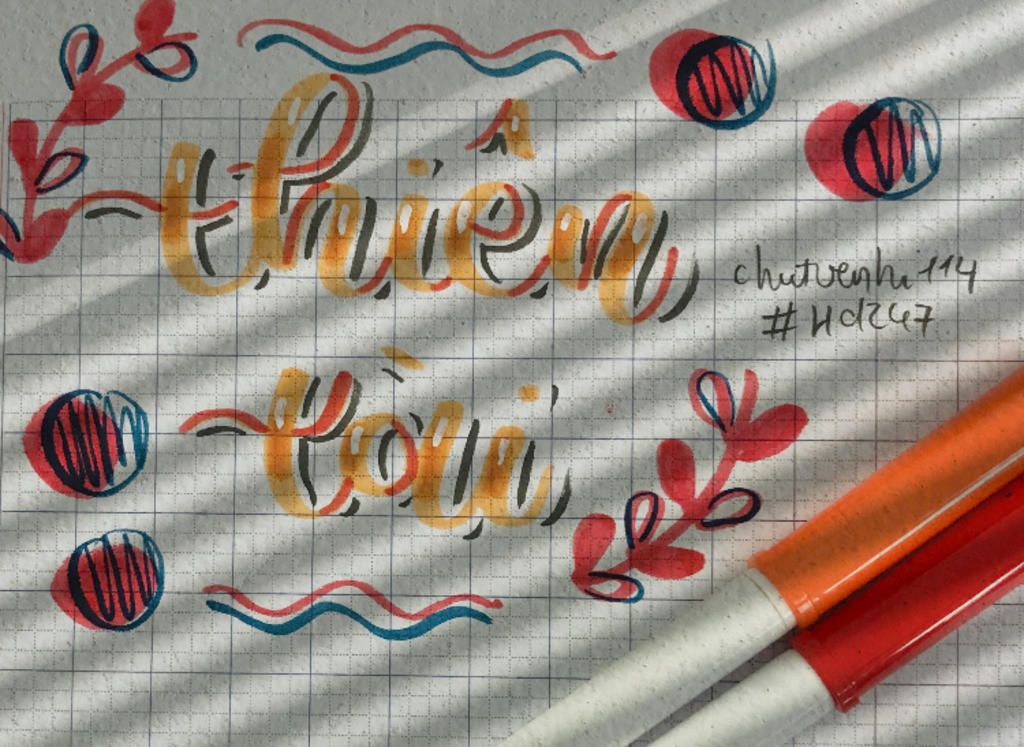 thiên
chutvenhi114
#Hd247